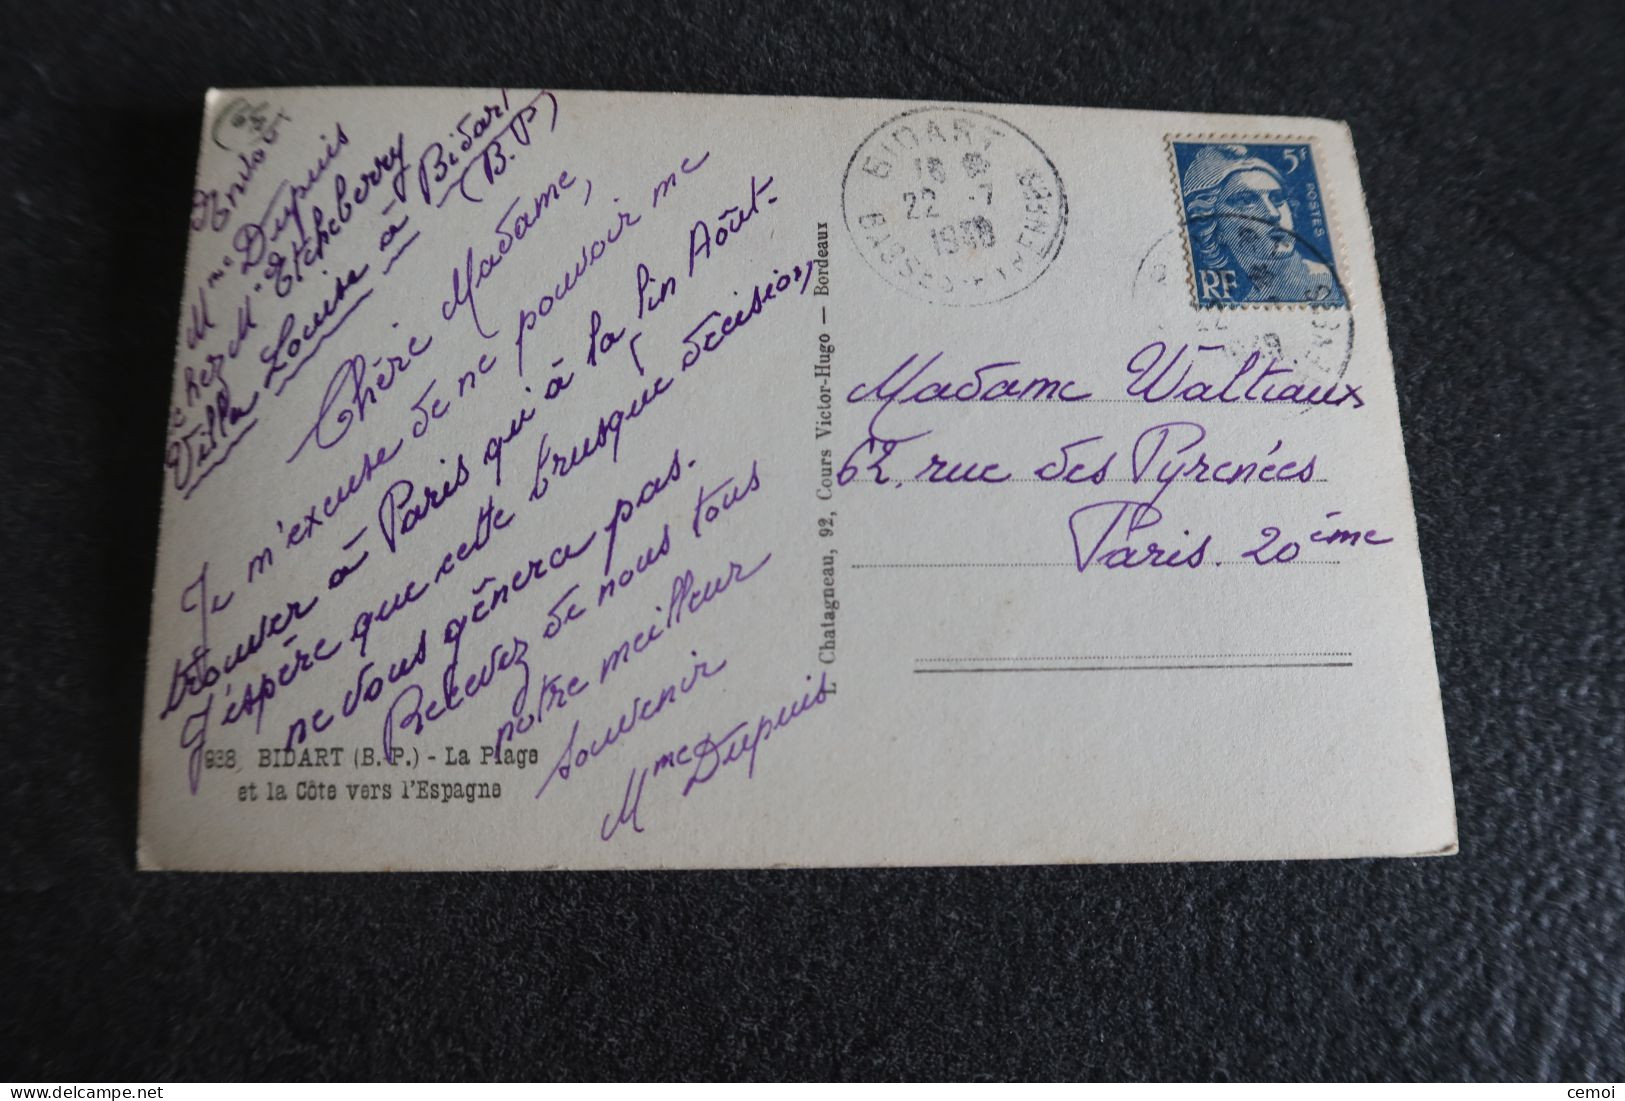 Endroit
Mme Dupuis
chez M. Etcheberry
Villa Louise à Bidart
(B.P)
Chère Madame,
Je m'excuse de ne pouvoir me
trouver à Paris qu'à la fin Août.
J'espère que cette brusque décision
ne vous gênera pas.
Recevez de nous tous
notre meilleur
souvenir
Mme Dupuis
938 BIDART (B. P.) - La Plage
et la Côte vers l'Espagne
L. Chatagneau, 92, Cours Victor-Hugo — Bordeaux
BIDART
18
22 -7
BASSES-PYRENEES
5F
POSTES
RF
Madame Waltiaux
62, rue des Pyrenées
Paris. 20ème
cemoi